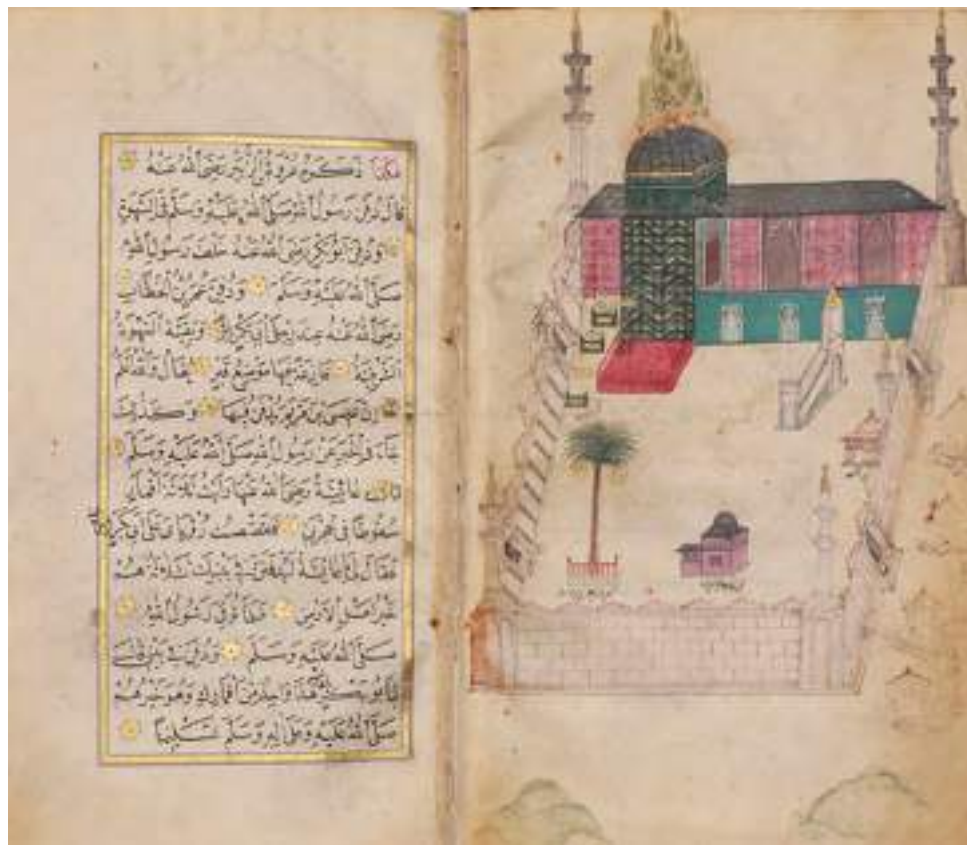 هكذا ذكره عروة بن الزبير رضي الله عنه
قال دفن رسول الله صلى الله عليه وسلم في السهوة
ودفن ابو بكر رضي الله عنه خلف رسول الله
صلى الله عليه وسلم ودفن عمر بن الخطاب
رضي الله عنه عند رجلي ابي بكر وبقية السهوة
الشرقية فارغة فيها موضع قبر يقال والله اعلم
ان عيسى بن مريم يدفن فيها وكذلك
جاء في الخبر عن رسول الله صلى الله عليه وسلم
قالت عائشة رضي الله عنها رايت ثلاثة اقمار
سقوطا في حجرتي فقصصت رؤياي على ابي بكر
فقال لي يا عائشة ليدفنن في بيتك ثلاثة هم
خير اهل الارض فلما توفي رسول الله
صلى الله عليه وسلم ودفن في بيتي قال لي
ابو بكر هذا واحد من اقمارك وهو خيرهم
صلى الله عليه وعلى اله وسلم تسليما